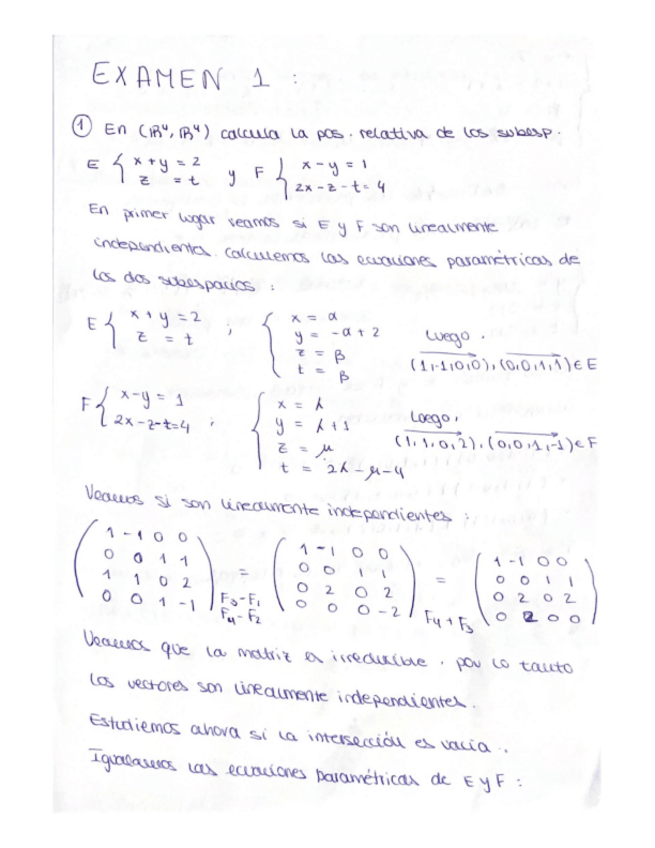 EXAMEN 1 :
① En (ℝ⁴, ℝ⁴) calcula la pos. relativa de los subesp.
E { x + y = 2 y F { x - y = 1
z = t 2x - z - t = 4
En primer lugar veamos si E y F son linealmente
independientes. Calculemos las ecuaciones paramétricas de
los dos subespacios :
E { x + y = 2 ; { x = α
z = t y = -α + 2 Luego.
z = β (1,-1,0,0), (0,0,1,1) ∈ E
t = β
F { x - y = 1 { x = λ
2x - z - t = 4 ; y = λ + 1 Luego,
z = μ (1,1,0,2), (0,0,1,-1) ∈ F
t = 2λ - μ - 4
Veamos si son linealmente independientes :
1 -1 0 0 1 -1 0 0 1 -1 0 0
0 0 1 1 = 0 0 1 1 = 0 0 1 1
1 1 0 2 0 2 0 2 0 2 0 2
0 0 1 -1 F₃-F₁ 0 0 0 -2 F₄+F₃ 0 2 0 0
F₄-F₂
Veamos que la matriz es irreducible, por lo tanto
los vectores son linealmente independientes.
Estudiemos ahora si la intersección es vacía.
Igualamos las ecuaciones paramétricas de E y F :